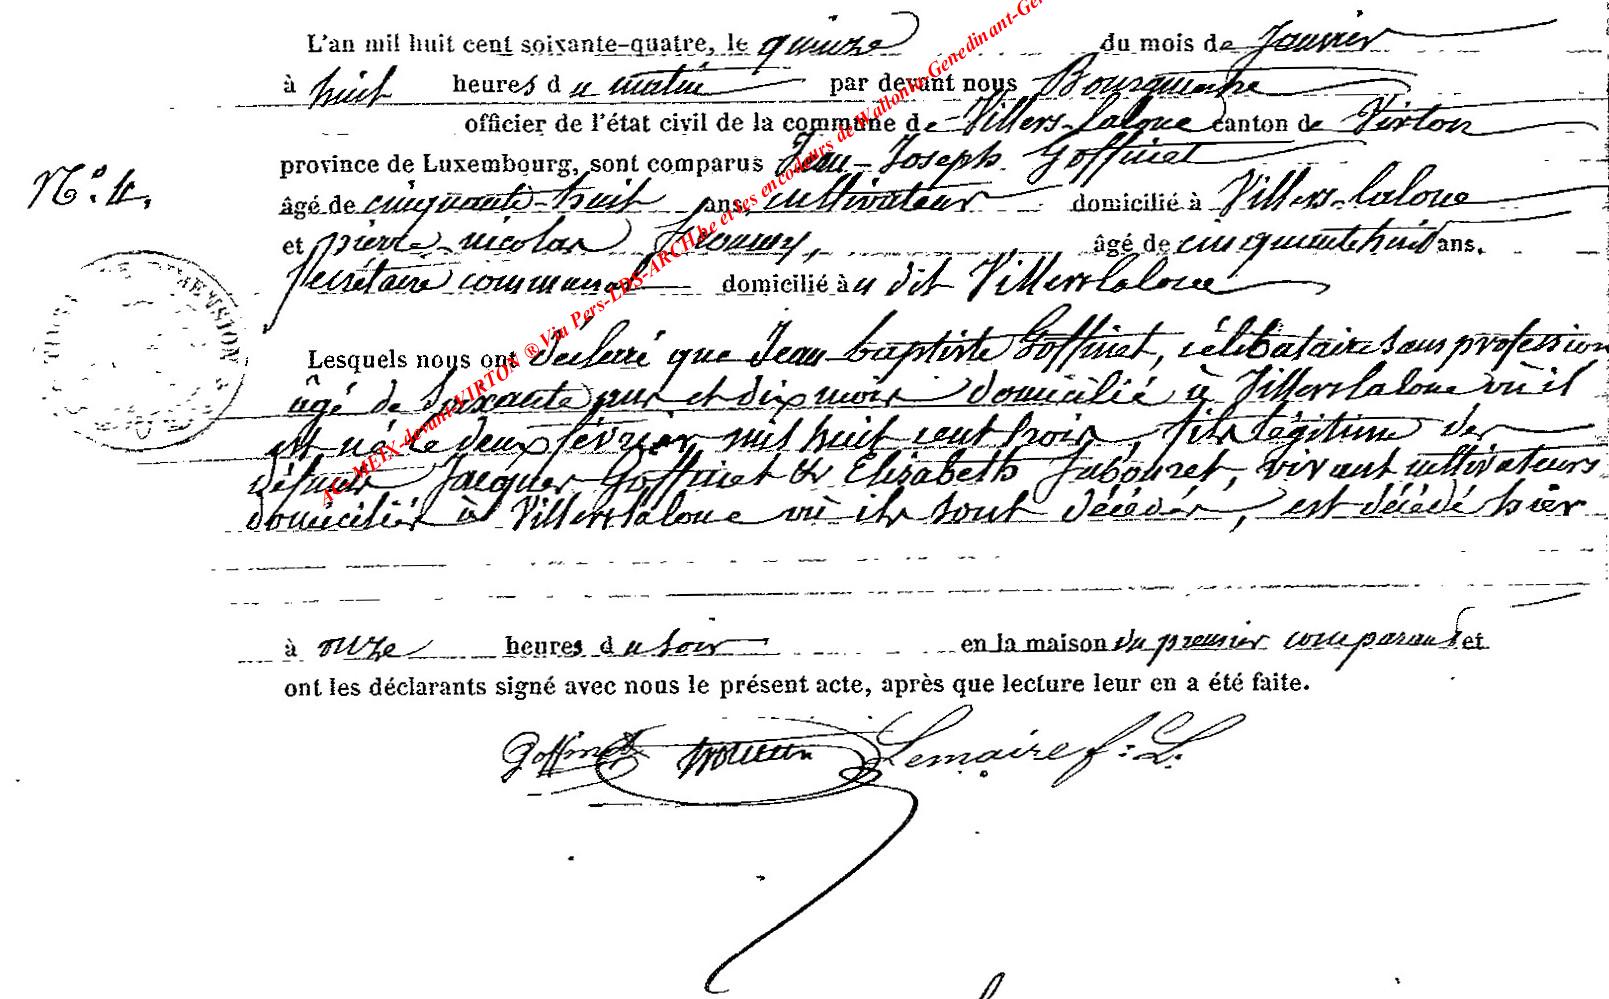 L'an mil huit cent soixante-quatre, le quinze du mois de Janvier
à huit heures du matin par devant nous Bourgmestre
officier de l'état civil de la commune de Villers-laloue canton de Virton
province de Luxembourg, sont comparus Jean-Joseph Goffinet
N.° 4.
âgé de cinquante-huit ans, cultivateur domicilié à Villers-laloue
et pierre-nicolas âgé de cinquante huit ans.
Secrétaire communal domicilié à u dit Villers laloue
Lesquels nous ont déclaré que Jean baptiste Goffinet, célibataire sans profession
âgé de Soixante ans et dix mois domicilié à Villers laloue où il
est né le deux février mil huit cent trois, fils légitime des
défunts Jacques Goffinet & Elisabeth Jabouret, vivant cultivateurs
domiciliés à Villers laloue où ils sont décédés, est décédé hier
à onze heures du soir en la maison du premier comparant et
ont les déclarants signé avec nous le présent acte, après que lecture leur en a été faite.
Goffinet Lemaire f: L.
AC MEIX-devant-VIRTON ® Via Pers-LDS-ARCH.be et les encodeurs de Wallonia-Genedinant-Gen